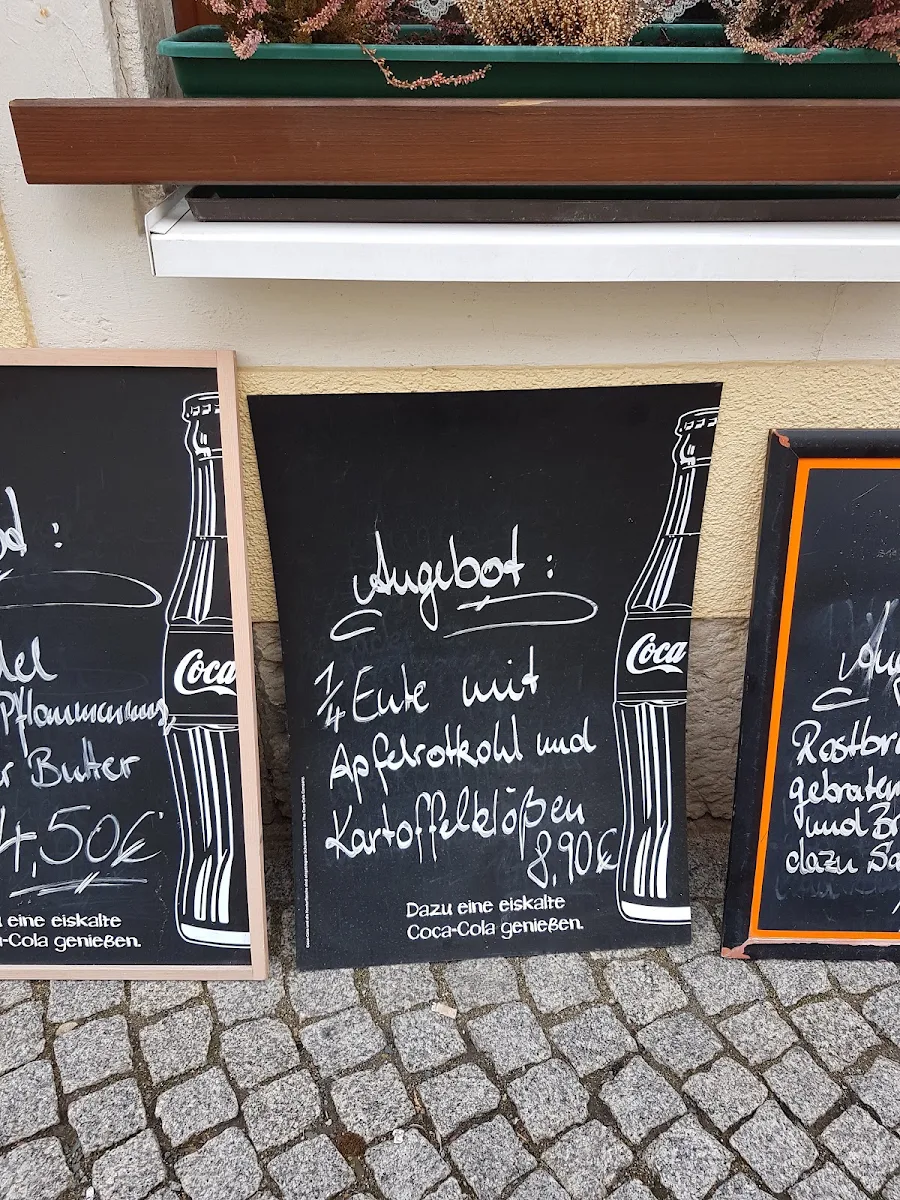 Pflaumenmus
Butter
4,50€
eine eiskalte
-Cola genießen.
Coca
Angebot:
1/4 Ente mit
Apfelrotkohl und
Kartoffelklößen
8,90€
Dazu eine eiskalte
Coca-Cola genießen.
Coca
gebraten
und
dazu